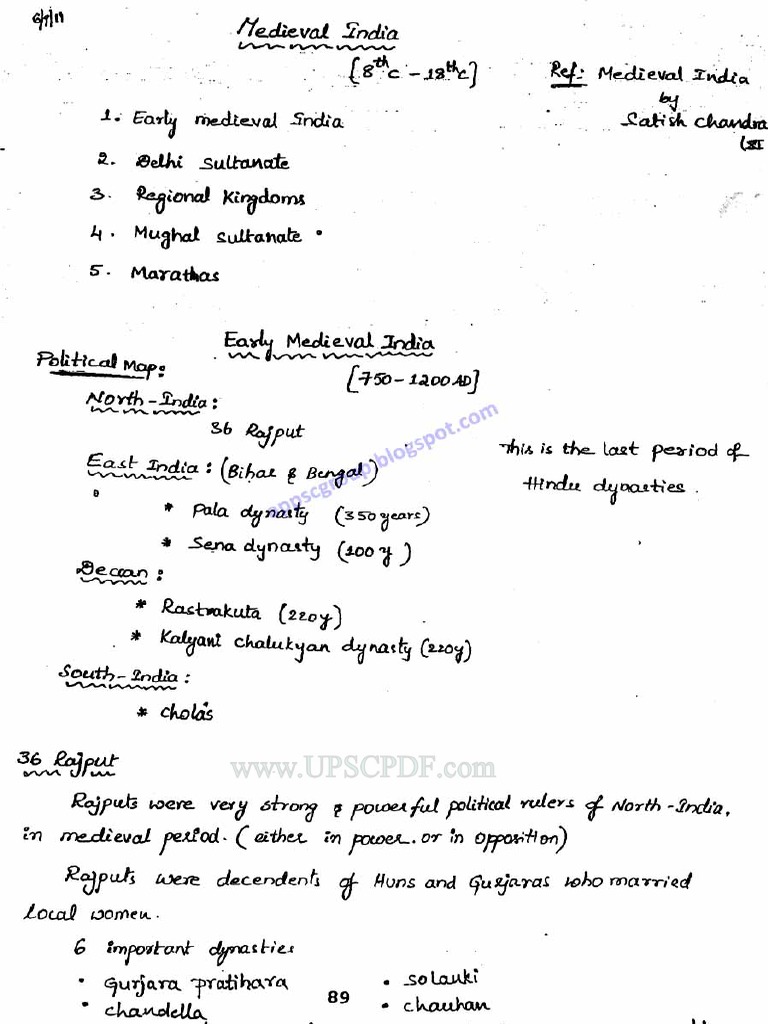 6/7/11
Medieval India
[8th c - 18th c]
Ref: Medieval India
by
Satish Chandra
(XI
1. Early medieval India
2. Delhi Sultanate
3. Regional Kingdoms
4. Mughal Sultanate
5. Marathas
Early Medieval India
[750-1200 AD]
Political Map:
North-India:
36 Rajput
East India: (Bihar & Bengal)
This is the last period of
Hindu dynasties.
* Pala dynasty (350 years)
* Sena dynasty (100 y)
Deccan:
* Rastrakuta (220y)
* Kalyani Chalukyan dynasty (220y)
South-India:
* Cholas
appscgroup.blogspot.com
36 Rajput
www.UPSCPDF.com
Rajputs were very strong & powerful political rulers of North-India,
in medieval period. (either in power. or in opposition)
Rajputs were decendents of Huns and Gurjaras who married
local women.
6 important dynasties
• Gurjara pratihara
• Solanki
• chandella
• chauhan
89